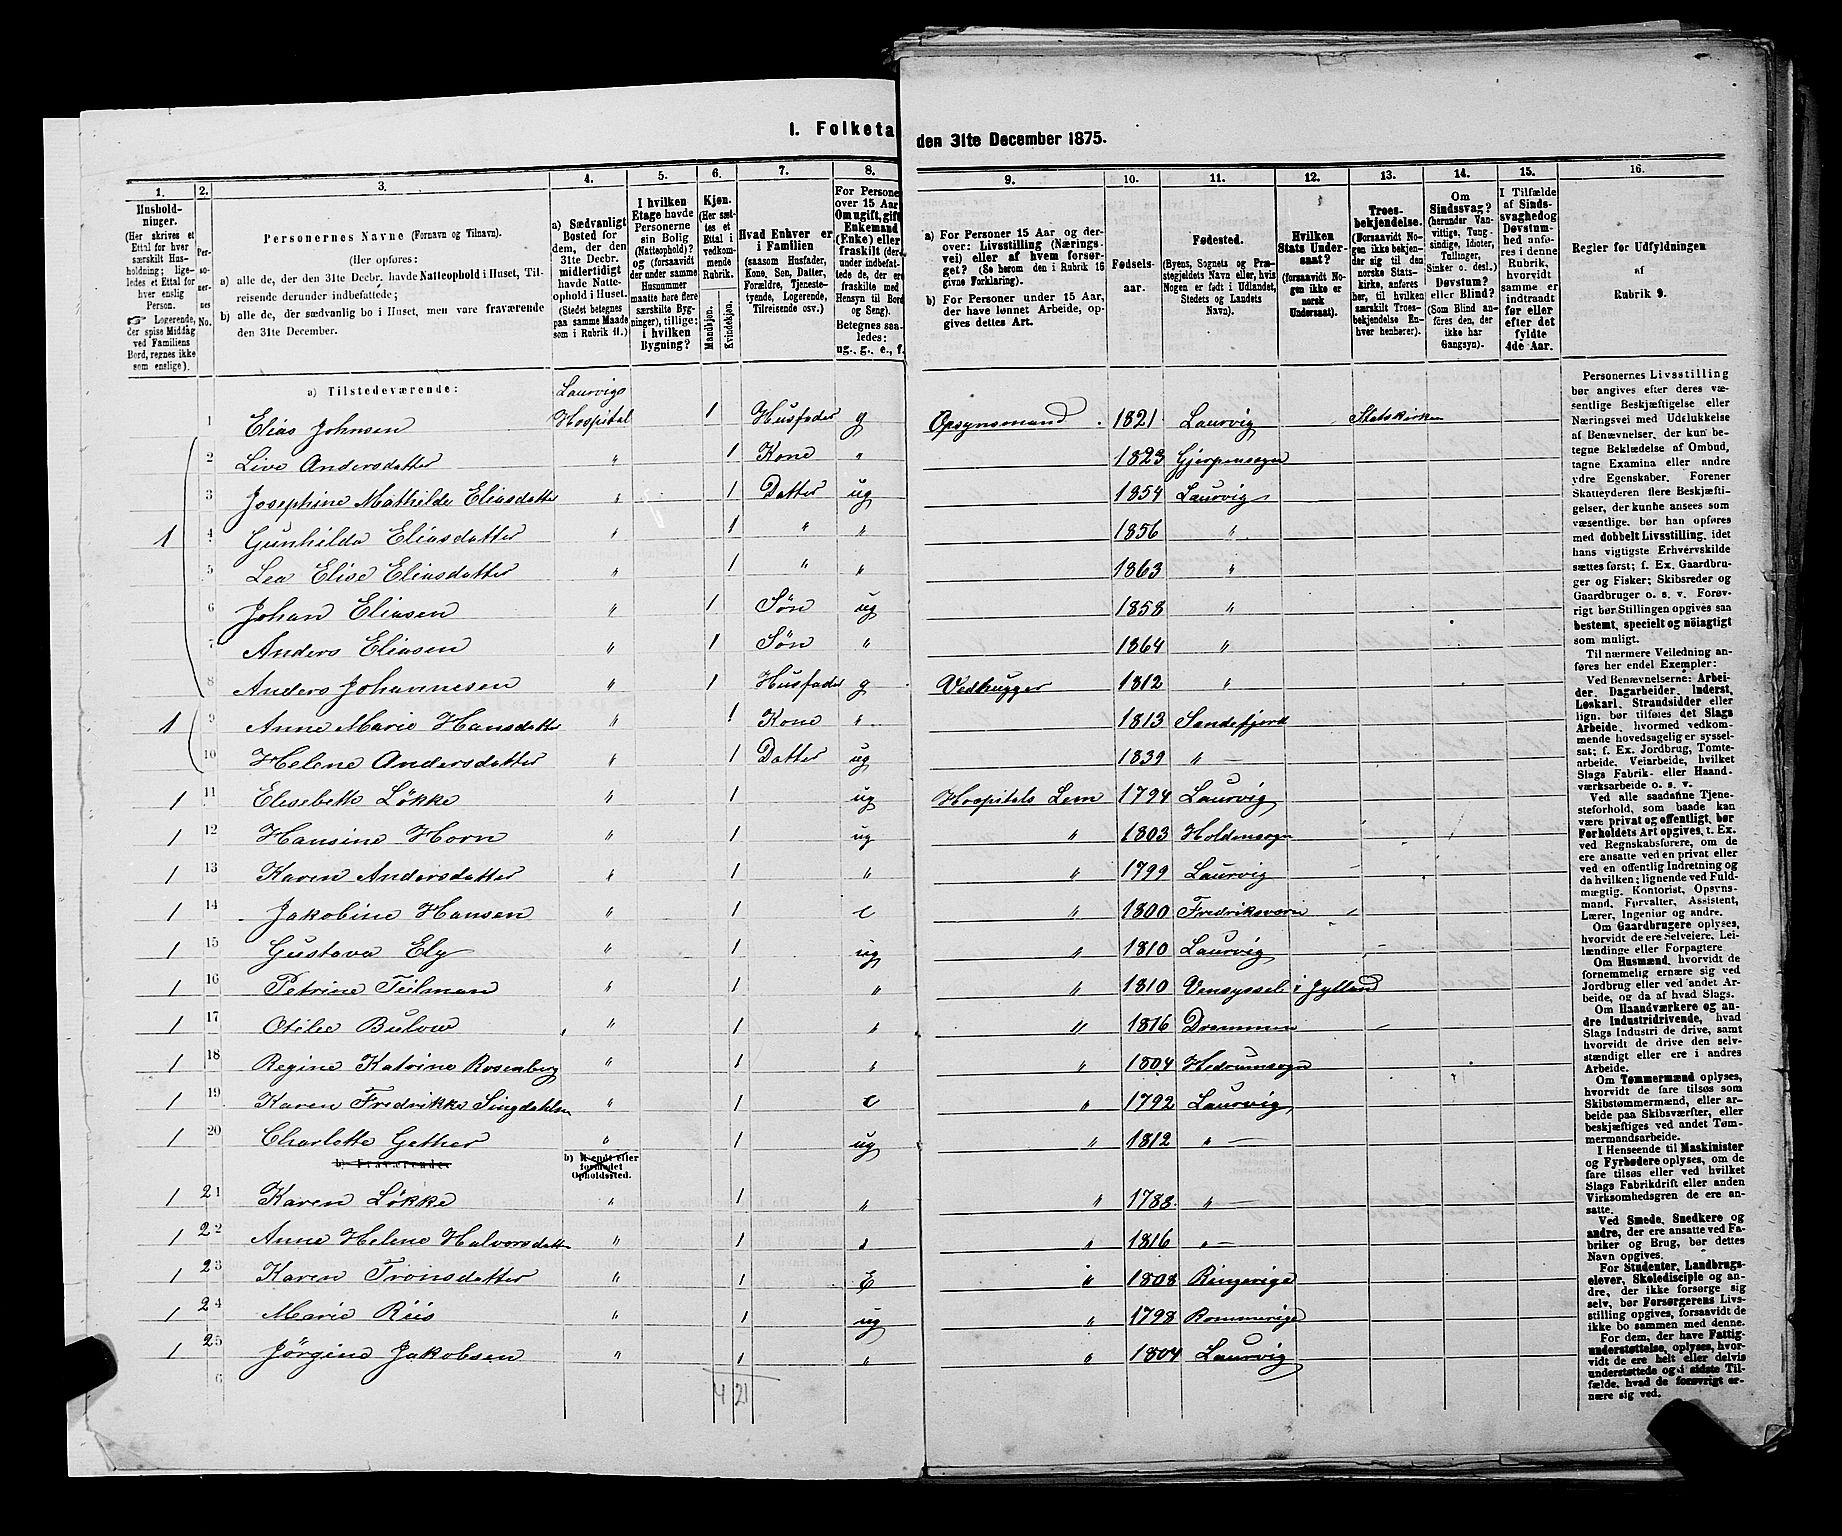 I. Folketa
den 31te December 1875.
1. 2. 3. 4. 5. 6. 7. 8. 9. 10. 11. 12. 13. 14. 15. 16.
Hushold-
ninger.
(Her skrives et
Ettal for hver
særskilt Hus-
holdning; lige-
ledes et Ettal
for hver
enslig
Person.
☞ Logerende,
der spise Middag
ved Familiens
Bord, regnes ikke
som enslige).
Per-
so-
ner-
nes
No.
Personernes Navne (Fornavn og Tilnavn).
(Her opføres:
a) alle de, der den 31te Decbr. havde Natteophold i Huset, Til-
reisende derunder indbefattede;
b) alle de, der sædvanlig bo i Huset, men vare fraværende
den 31te December.
a) Sædvanligt
Bosted for
dem, der den
31te Decbr.
midlertidigt
havde Natte-
ophold i Huset.
(Stedet betegnes
paa samme Maade
som i Rubrik 11.)
I hvilken
Etage havde
Personerne
sin Bolig
(Natteophold)?
og (forsaavidt
der under samme
Husnummer
maatte høre flere
særskilte Byg-
ninger), tillige:
i hvilken
Bygning?
Kjøn.
(Her sæt-
tes et
Ettal i
vedkom-
mende
Rubrik.
Mandkjøn.
Kvindekjøn.
Hvad Enhver er
i Familien
(saasom Husfader,
Kone, Søn, Datter,
Forældre, Tjeneste-
tyende, Logerende,
Tilreisende osv.)
For Personer
over 15 Aar:
Om ugift, gift,
Enkemand
(Enke) eller
fraskilt (der-
under indbefat-
tede de, der ere
fraskilte med
Hensyn til Bord
og Seng).
Betegnes saa-
ledes:
ug., g., e., f.
a) For Personer 15 Aar og der-
over: Livsstilling (Nærings-
vei) eller af hvem forsør-
get? (Se herom den i Rubrik 16
givne Forklaring).
b) For Personer under 15 Aar,
der have lønnet Arbeide, op-
gives dettes Art.
Fødsels-
aar.
Fødested.
(Byens, Sognets og Præ-
stegjeldets Navn eller, hvis
Nogen er født i Udlandet,
Stedets og Landets
Navn).
Hvilken
Stats Under-
saat?
(forsaavidt No-
gen ikke er
norsk
Undersaat).
Troes-
bekjendelse.
(Forsaavidt No-
gen ikke bekjen-
der sig til den
norske Stats-
kirke, anføres
her, til hvilket
særskilt Troes-
bekjendelse En-
hver henhører).
Om
Sindssvag?
(herunder Van-
vittige, Tung-
sindige, Idioter,
Tullinger,
Sinker o. desl.)
Døvstum?
eller Blind?
(Som Blind an-
føres den, der
ikke har
Gangsyn).
I Tilfælde
af Sinds-
svaghed og
Døvstum-
hed anfø-
res i denne
Rubrik,
hvorvidt
samme er
indtraadt
før eller
efter det
fyldte
4de Aar.
Regler for Udfyldningen
af
Rubrik 9.
a) Tilstedeværende:
Laurvigs
1 Elias Johnsen Hospital 1 Husfader g Opsynsmand 1821 Laurvig Statskirken
2 Live Andersdatter " 1 Kone " 1823 Gjerpensogn
3 Josephine Mathilde Eliasdatter " 1 Datter ug 1854 Laurvig
1 4 Gunhilda Eliasdatter " 1 " " 1856 "
5 Lea Elise Eliasdatter " 1 " " 1863 "
6 Johan Eliasen " 1 Søn ug 1858 "
7 Anders Eliasen " 1 Søn " 1864 "
8 Anders Johannesen " 1 Husfader g Vedhugger 1812 "
1 9 Anne Marie Hansdatter " 1 Kone " 1813 Sandefjord
10 Helene Andersdatter " 1 Datter ug 1839 " —
1 11 Elisebeth Løkke " 1 ug Hospitals Lem 1794 Laurvig
1 12 Hansine Horn " 1 ug " 1803 Holdensogn
1 13 Karen Andersdatter " 1 " " 1799 Laurvig
1 14 Jakobine Hansen " 1 e " 1800 Fredriksværn
1 15 Gustava Ely " 1 ug " 1810 Laurvig
1 16 Petrine Teilman " 1 " " 1810 Vensyssel i Jylland
1 17 Otilie Bulow " 1 " " 1816 Drammen
1 18 Regine Katrine Rosenberg " 1 " " 1804 Hedrumsogn
1 19 Karen Fredrikke Singdahlsen " 1 e " 1792 Laurvig
1 20 Charlotte Gether " 1 ug " 1812 " —
b) Fraværende: b) Kjendt eller formodet Opholdssted.
1 21 Karen Løkke " 1 " " 1788 " —
1 22 Anne Helene Halvorsdatt " 1 " " 1816 " —
1 23 Karen Tronsdatter " 1 E " 1808 Ringerige
1 24 Marie Riis " 1 ug " 1798 Rommerige
1 25 Jørgine Jakobsen " 1 " " 1804 Laurvig
6
4 21
Personernes Livsstilling
bør angives efter deres væ-
sentlige Beskjæftigelse eller
Næringsvei med Udelukkelse
af Benævnelser, der kun be-
tegne Beklædelse af Ombud,
tagne Examina eller andre
ydre Egenskaber. Forener
Skatteyderen flere Beskjæfti-
gelser, der kunne ansees som
væsentlige, bør han opføres
med dobbelt Livsstilling, idet
hans vigtigste Erhvervskilde
sættes først; f. Ex. Gaardbru-
ger og Fisker; Skibsreder og
Gaardbruger o. s. v. Forøv-
rigt bør Stillingen opgives saa
bestemt, specielt og nøiagtigt
som muligt.
Til nærmere Veiledning an-
føres her endel Exempler:
Ved Benævnelserne: Arbei-
der, Dagarbeider, Inderst,
Løskarl, Strandsidder eller
lign. bør tilføies det Slags
Arbeide, hvormed vedkom-
mende hovedsagelig er syssel-
sat; f. Ex. Jordbrug, Tomte-
arbeide, Veiarbeide, hvilket
Slags Fabrik- eller Haand-
værksarbeide o. s. v.
Ved alle saadanne Tjene-
steforhold, som baade kan
være privat og offentligt, bør
Forholdets Art opgives, t. Ex.
ved Regnskabsførere, om de
ere ansatte ved en privat eller
ved en offentlig Indretning og
da hvilken; lignende ved Fuld-
mægtig, Kontorist, Opsyns-
mand, Forvalter, Assistent,
Lærer, Ingeniør og andre.
Om Gaardbrugere oplyses,
hvorvidt de ere Selveiere, Lei-
lændinge eller Forpagtere
Om Husmænd, hvorvidt de
fornemmelig ernære sig ved
Jordbrug eller ved andet Ar-
beide, og da af hvad Slags.
Om Haandværkere og an-
dre Industridrivende, hvad
Slags Industri de drive, samt
hvorvidt de drive den selv-
stændigt eller ere i andres
Arbeide.
Om Tømmermænd oplyses,
hvorvidt de fare tilsøs som
Skibstømmermænd, eller ar-
beide paa Skibsværfter, eller
beskjæftiges ved andet Tøm-
mermandsarbeide.
I Henseende til Maskinister
og Fyrbødere oplyses, om de
fare tilsøs eller ved hvilket
Slags Fabrikdrift eller anden
Virksomhedsgren de ere an-
satte.
Ved Smede, Snedkere og
andre, der ere ansatte ved Fa-
briker og Brug, bør dettes
Navn opgives.
For Studenter, Landbrugs-
elever, Skoledisciple og an-
dre, der ikke forsørge sig
selv, bør Forsørgerens Livs-
stilling opgives, forsaavidt de
ikke bo sammen med denne.
For dem, der have Fattig-
understøttelse, oplyses, hvor-
vidt de ere helt eller delvis
understøttede og i sidste Til-
fælde, hvad de forøvrigt er-
nære sig ved.